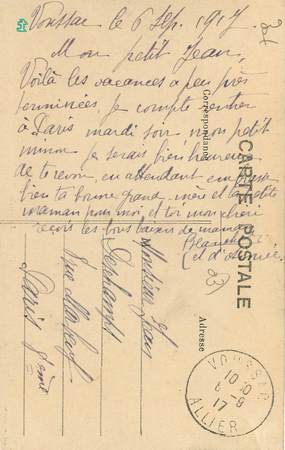 Voussac le 6 Sep. 1917
Mon petit Jean,
Voilà les vacances à peu près
terminées, je compte rentrer
à Paris mardi soir mon petit
minon je serais bien heureuse
de te revoir, en attendant embrasse
bien ta bonne grand mère et la petite
maman pour moi, et toi mon chéri
reçois les bons baisers de
Blanche
et d'
Correspondance
CARTE POSTALE
Adresse
Monsieur Jean
Deschamps
Rue
Paris
VOUSSAC
10 10
6 - 9
17
ALLIER